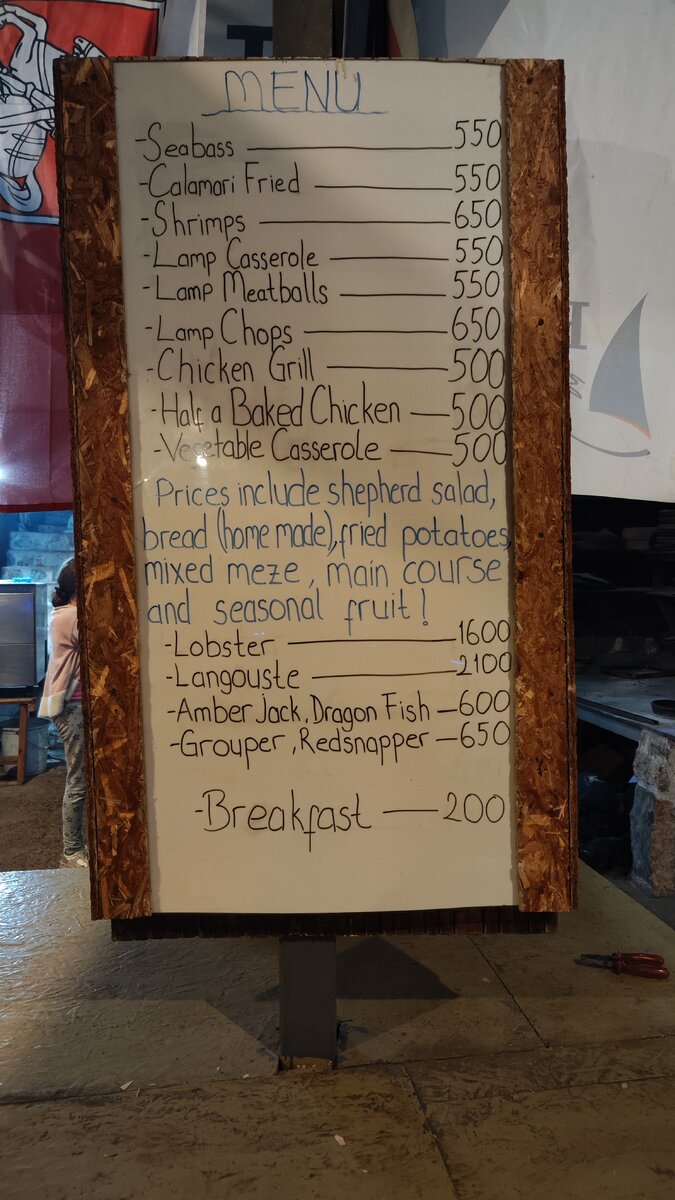 MENU
-Seabass 550
-Calamari Fried 550
-Shrimps 650
-Lamp Casserole 550
-Lamp Meatballs 550
-Lamp Chops 650
-Chicken Grill 500
-Half a Baked Chicken 500
-Vegetable Casserole 500
Prices include shepherd salad,
bread (home made), fried potatoes,
mixed meze, main course
and seasonal fruit!
-Lobster 1600
-Langouste 2100
-Amber Jack, Dragon Fish 600
-Grouper, Redsnapper 650
-Breakfast 200